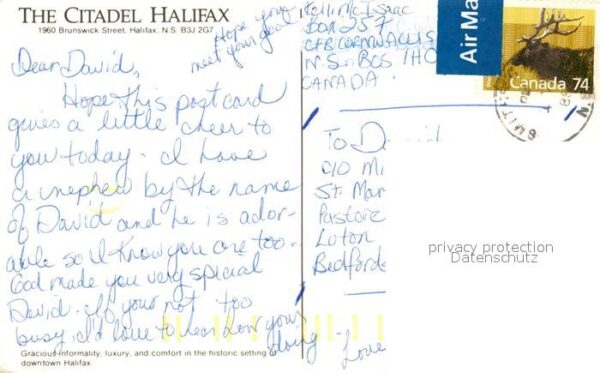 THE CITADEL HALIFAX
1960 Brunswick Street, Halifax, N.S. B3J 2G7
Hope you
meet your goal
Dear David,
Hope this postcard
gives a little cheer to
you today. I have
a nephew by the name
of David and he is ador-
able so I know you are too.
God made you very special
David. If your not too
busy, I'd love to hear how your
doing
Love
Gracious informality, luxury, and comfort in the historic setting of
downtown Halifax.
Kelli McIsaac
Box 257
CFB CORNWALLIS
N.S. BOS 1H0
CANADA
Air Mail
Canada 74
To D
c/o Mi
St. Mar
Pastore
Luton
Bedforde
privacy protection
Datenschutz